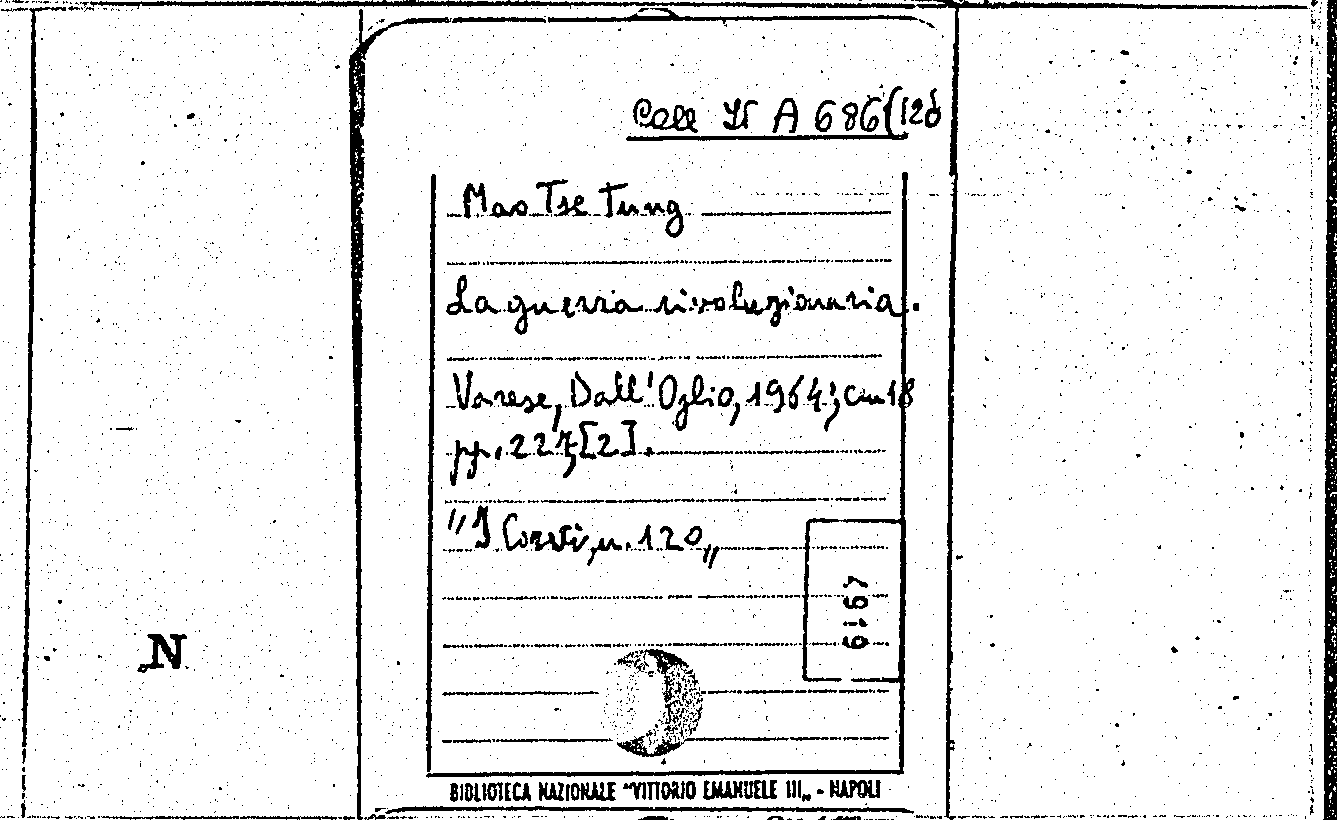 Coll. It A 686(120
Mao Tse Tung
La guerra rivoluzionaria.
Varese, Dall'Oglio, 1964; cm 18
pp. 227, [2].
"I Corvi, n. 120„
6167
N
BIBLIOTECA NAZIONALE "VITTORIO EMANUELE III„ - NAPOLI